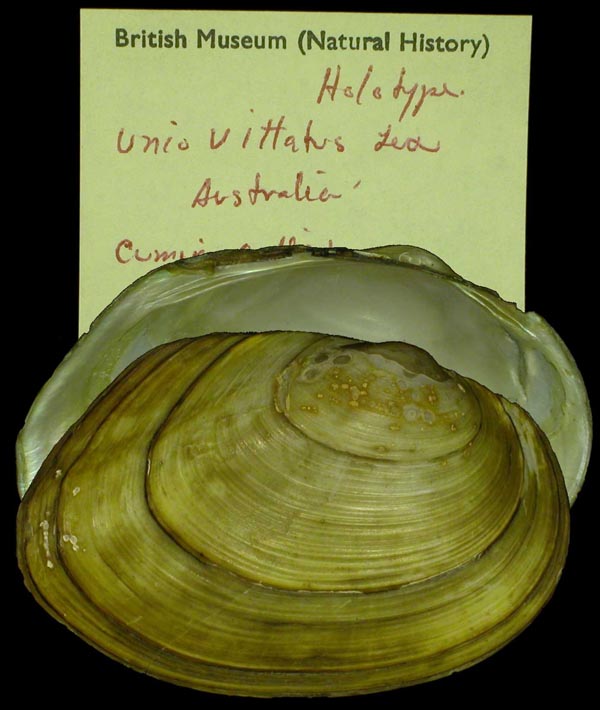 British Museum (Natural History)
Holotype.
Unio Vittatus Lea
Australia